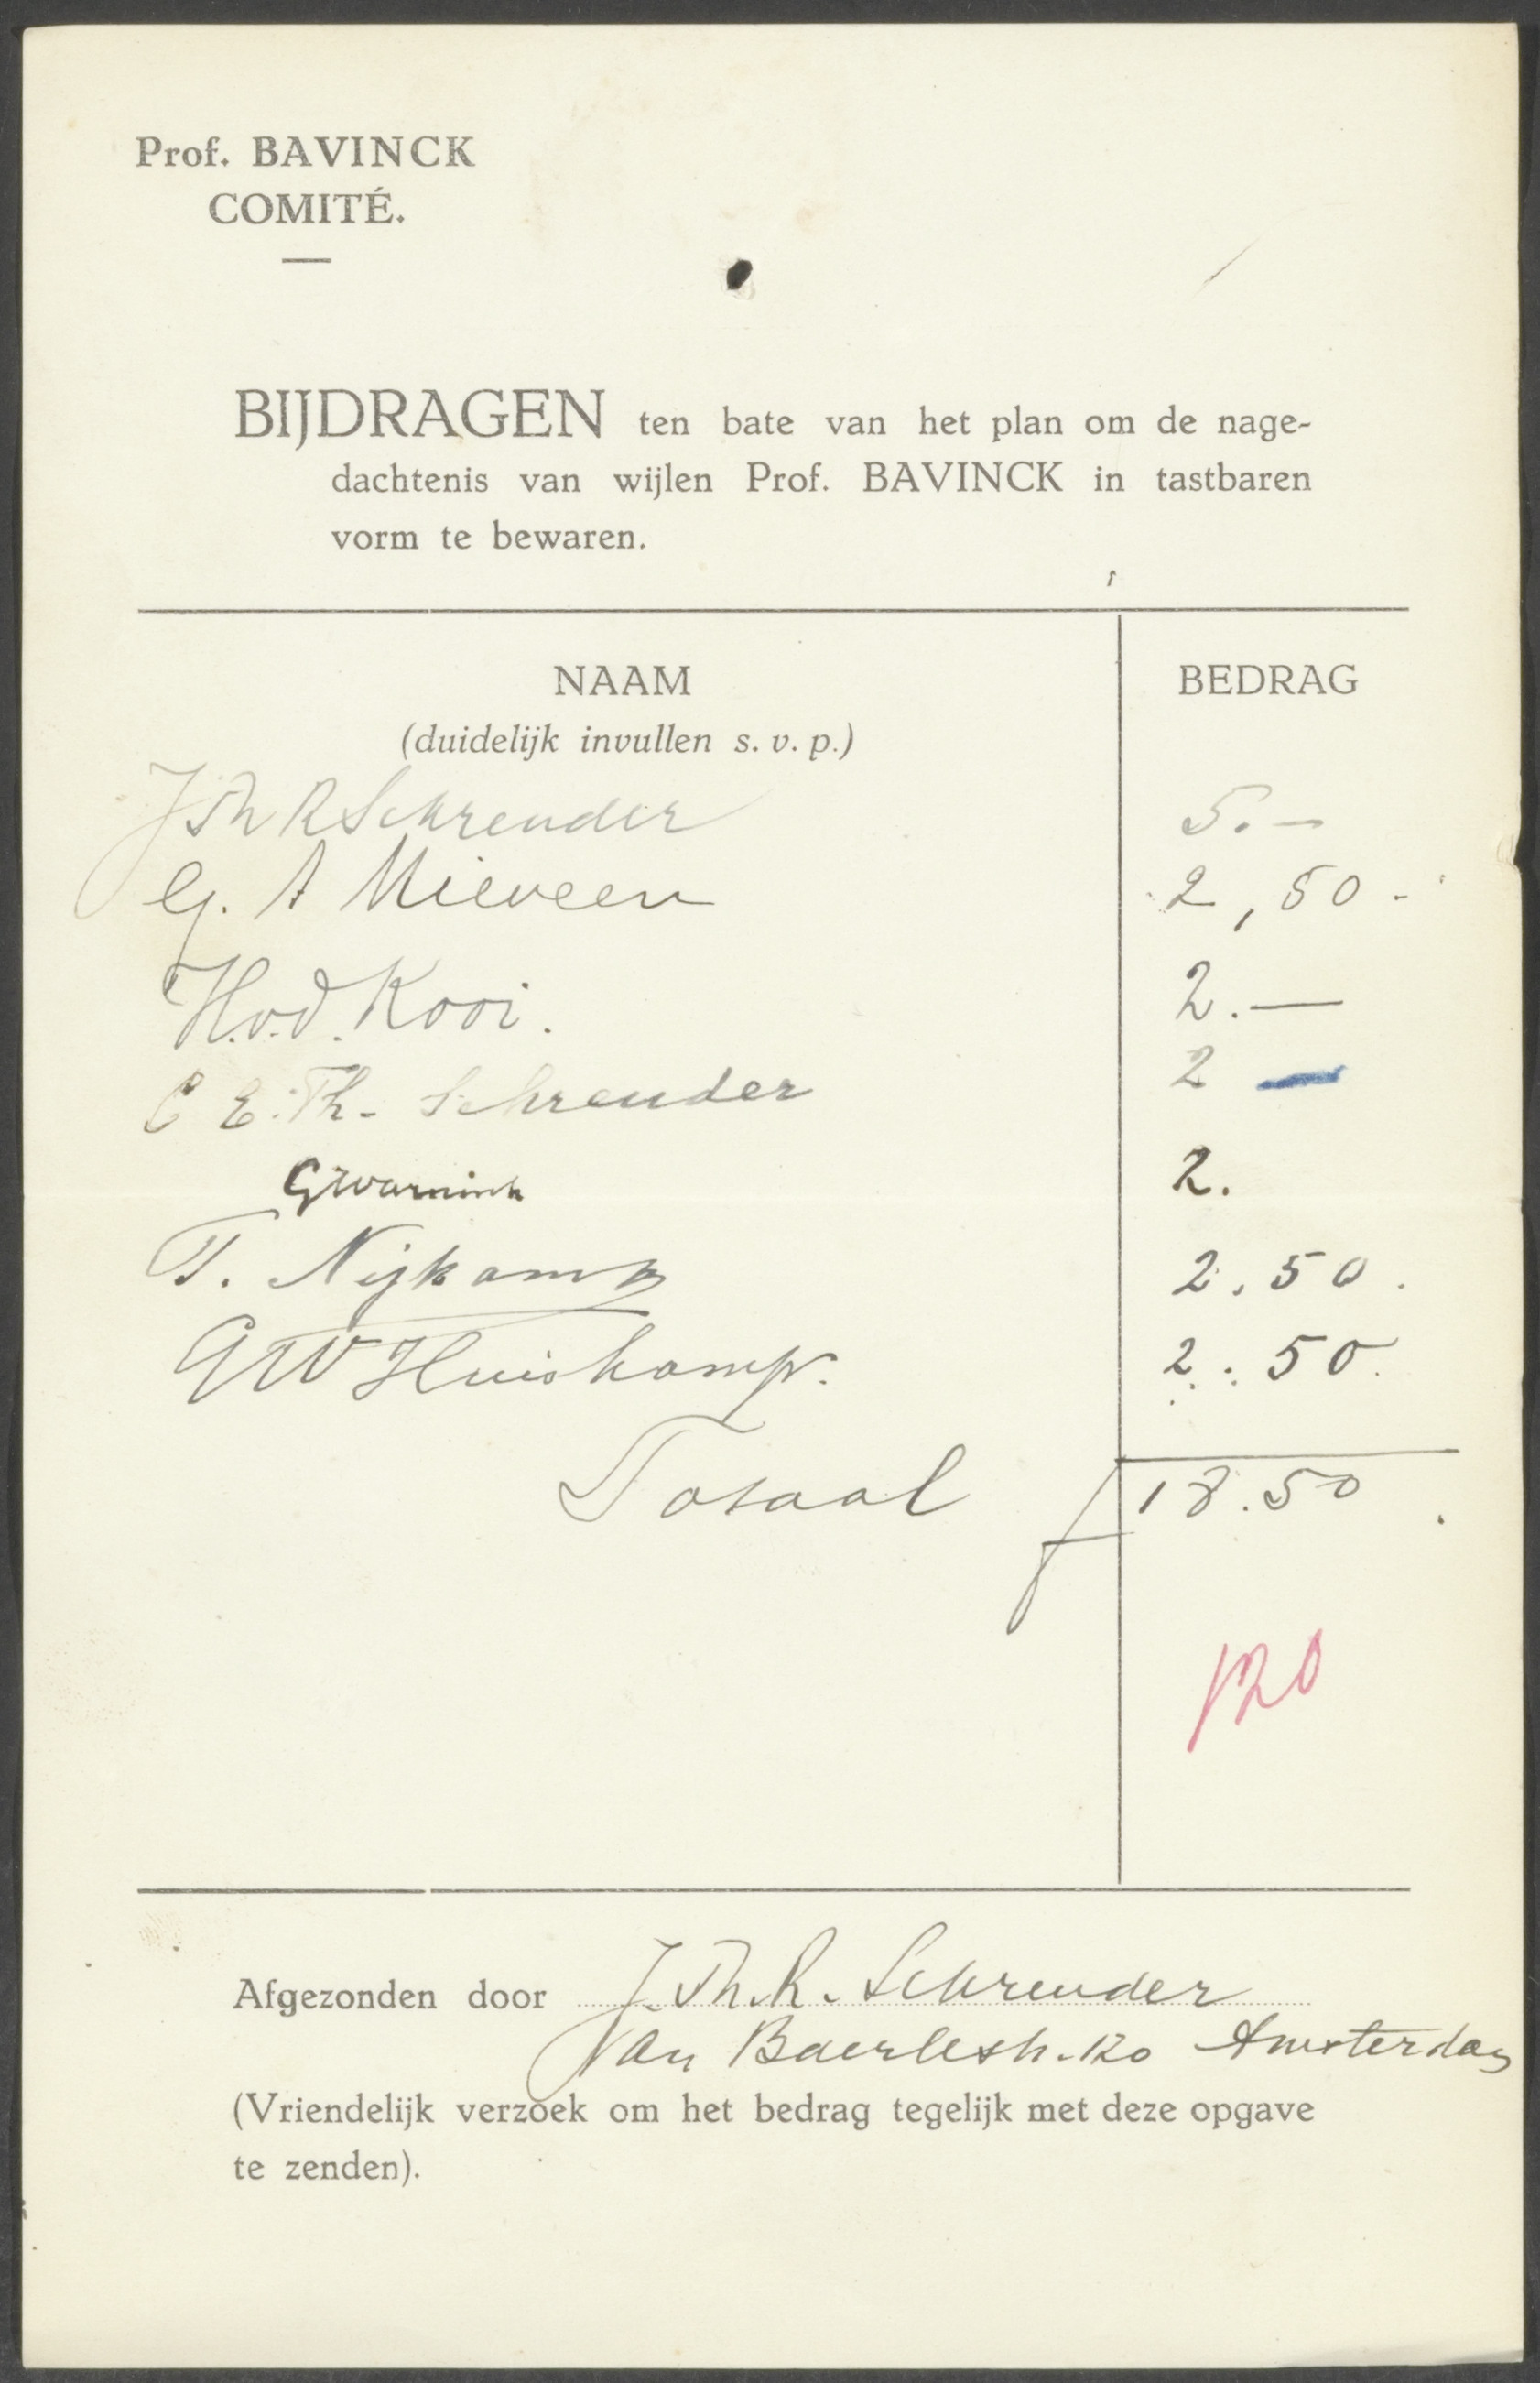 Prof. BAVINCK
COMITÉ.
BIJDRAGEN ten bate van het plan om de nage-
dachtenis van wijlen Prof. BAVINCK in tastbaren
vorm te bewaren.
NAAM BEDRAG
(duidelijk invullen s. v. p.)
J Th R Schreuder 5.—
G. A Mieveen 2,50 -
H. v. d. Kooi. 2.—
C E. Th. Schreuder 2 —
GWarnink 2.
T. Nijkamp 2.50.
GW Huiskamp. 2.50.
Totaal f 18.50
120
Afgezonden door J. Th. R. Schreuder
Van Baerlestr. 120 Amsterdam
(Vriendelijk verzoek om het bedrag tegelijk met deze opgave
te zenden).